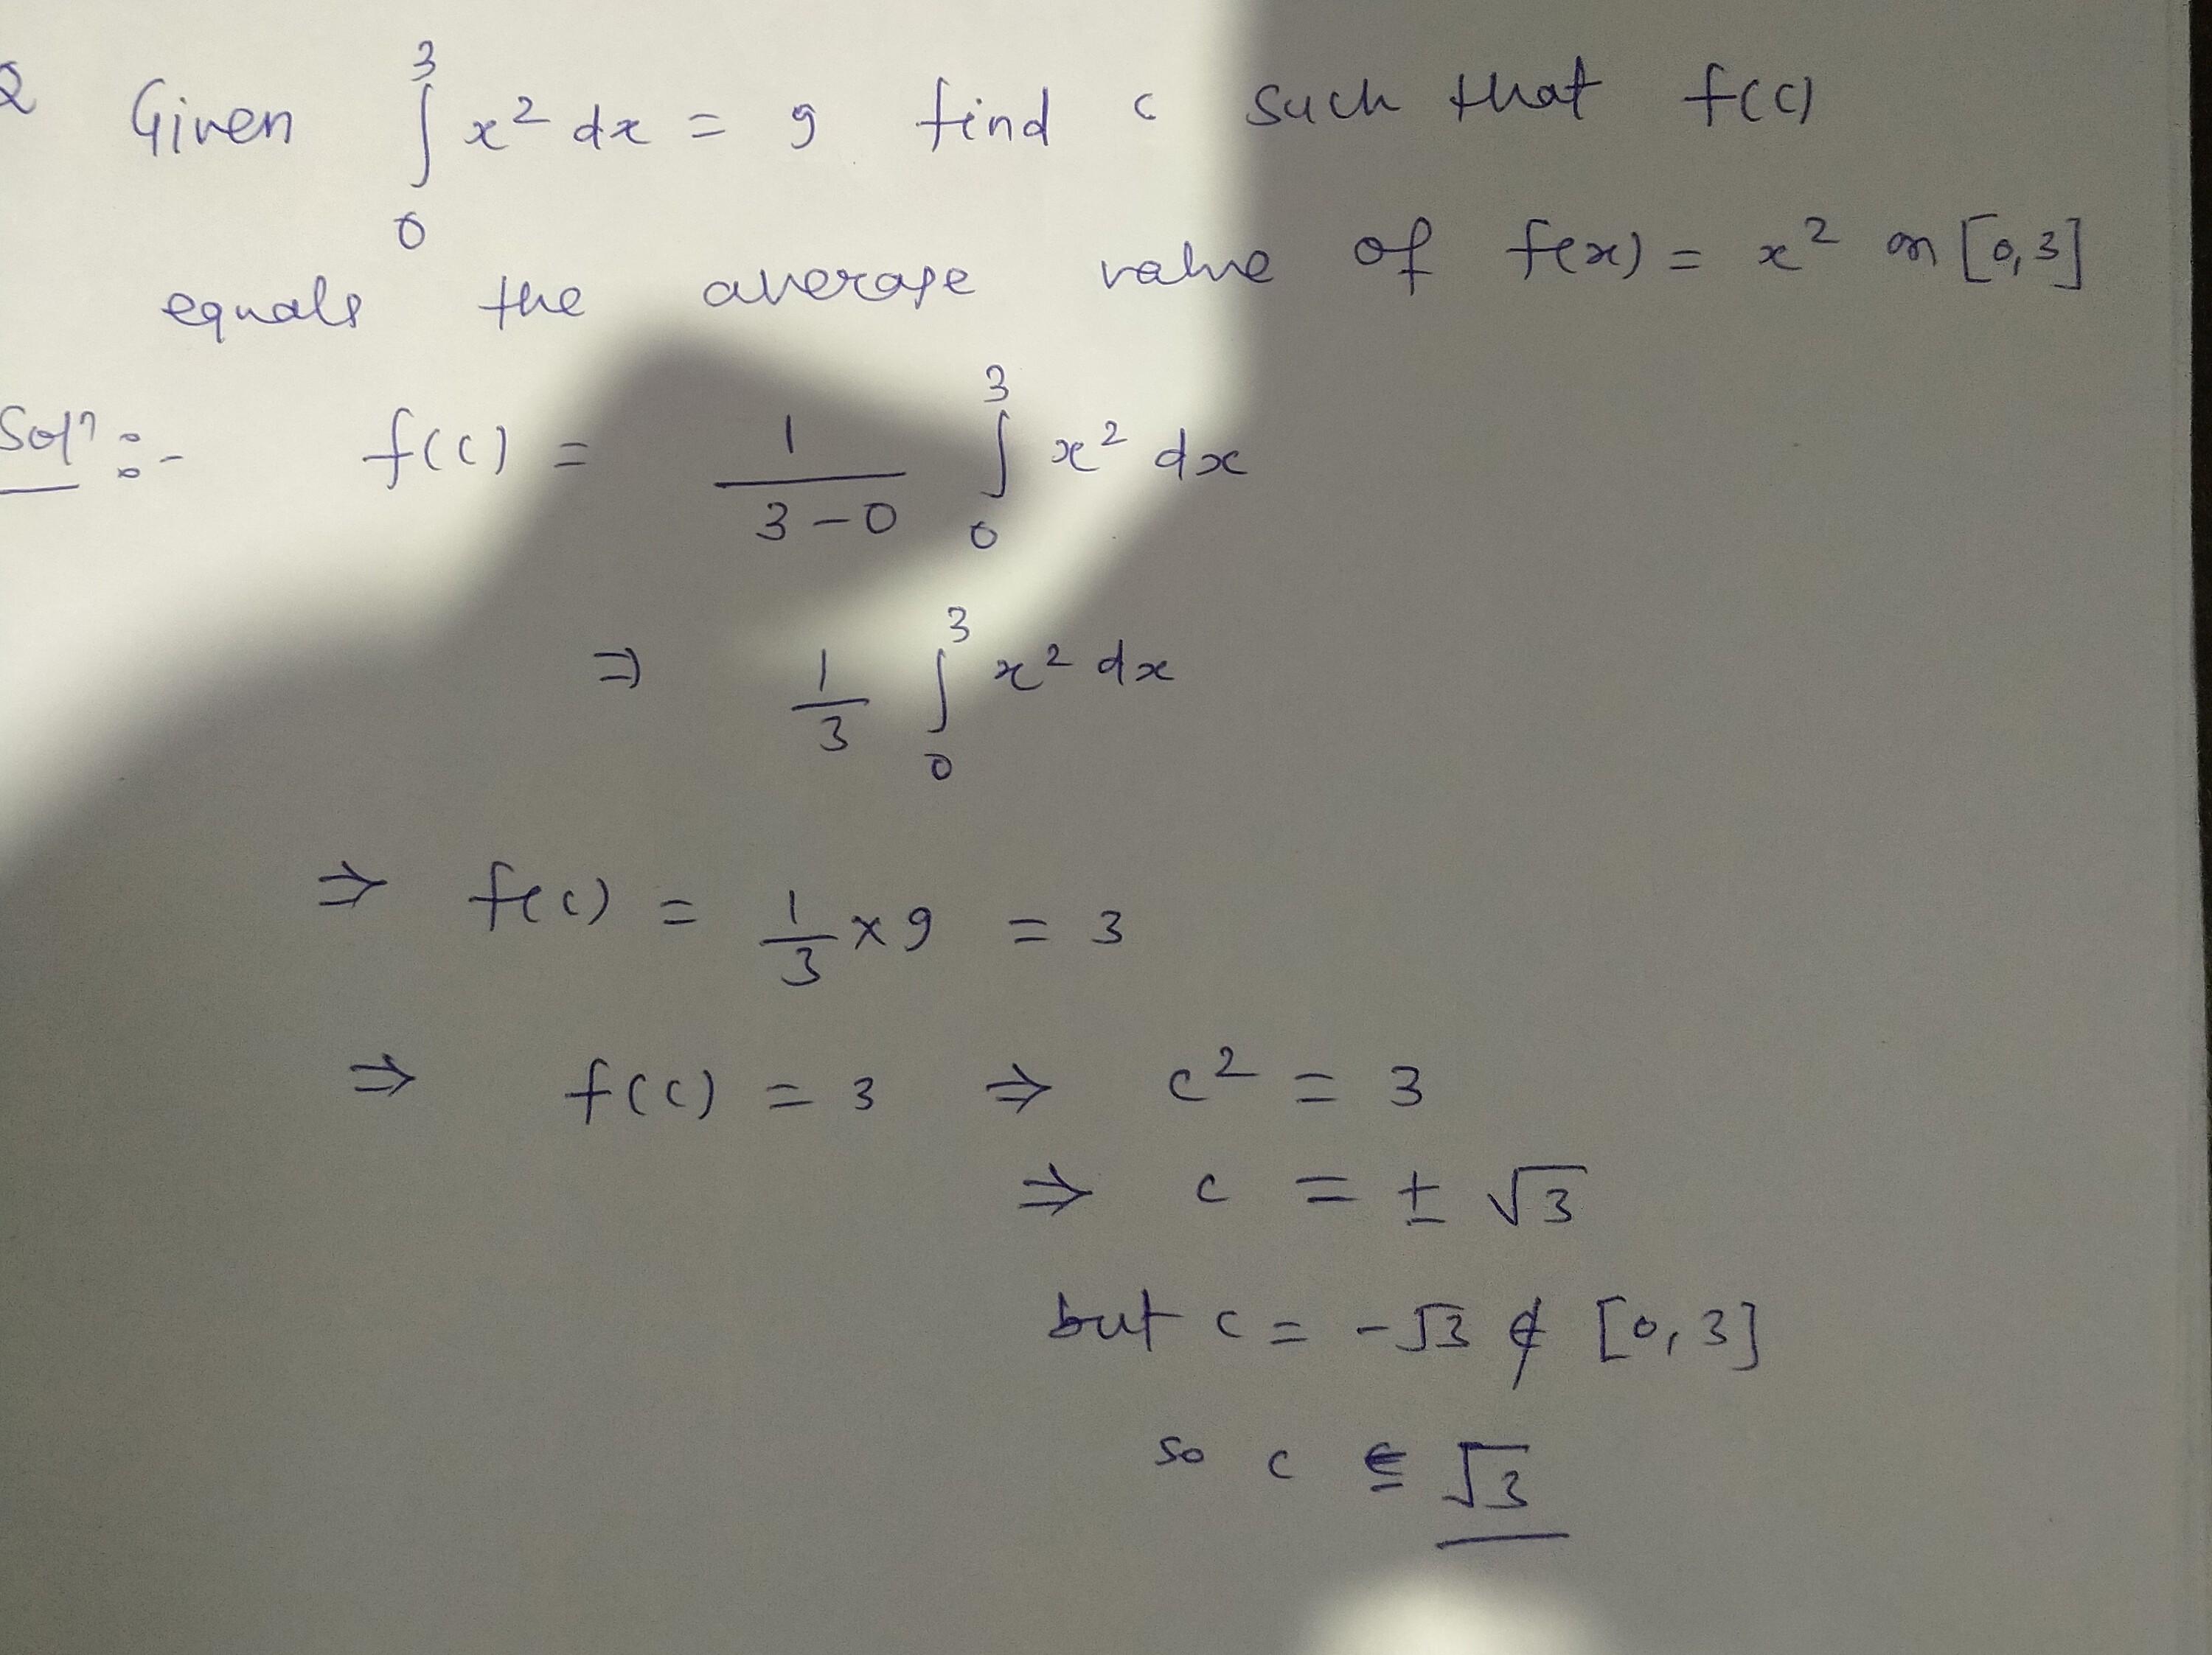 Q Given ∫₀³ x² dx = 9 find c such that f(c)
equals the average value of f(x) = x² on [0,3]
Solⁿ :- f(c) = 1/(3-0) ∫₀³ x² dx
⇒ 1/3 ∫₀³ x² dx
⇒ f(c) = 1/3 × 9 = 3
⇒ f(c) = 3 ⇒ c² = 3
⇒ c = ± √3
but c = -√3 ∉ [0,3]
so c = √3